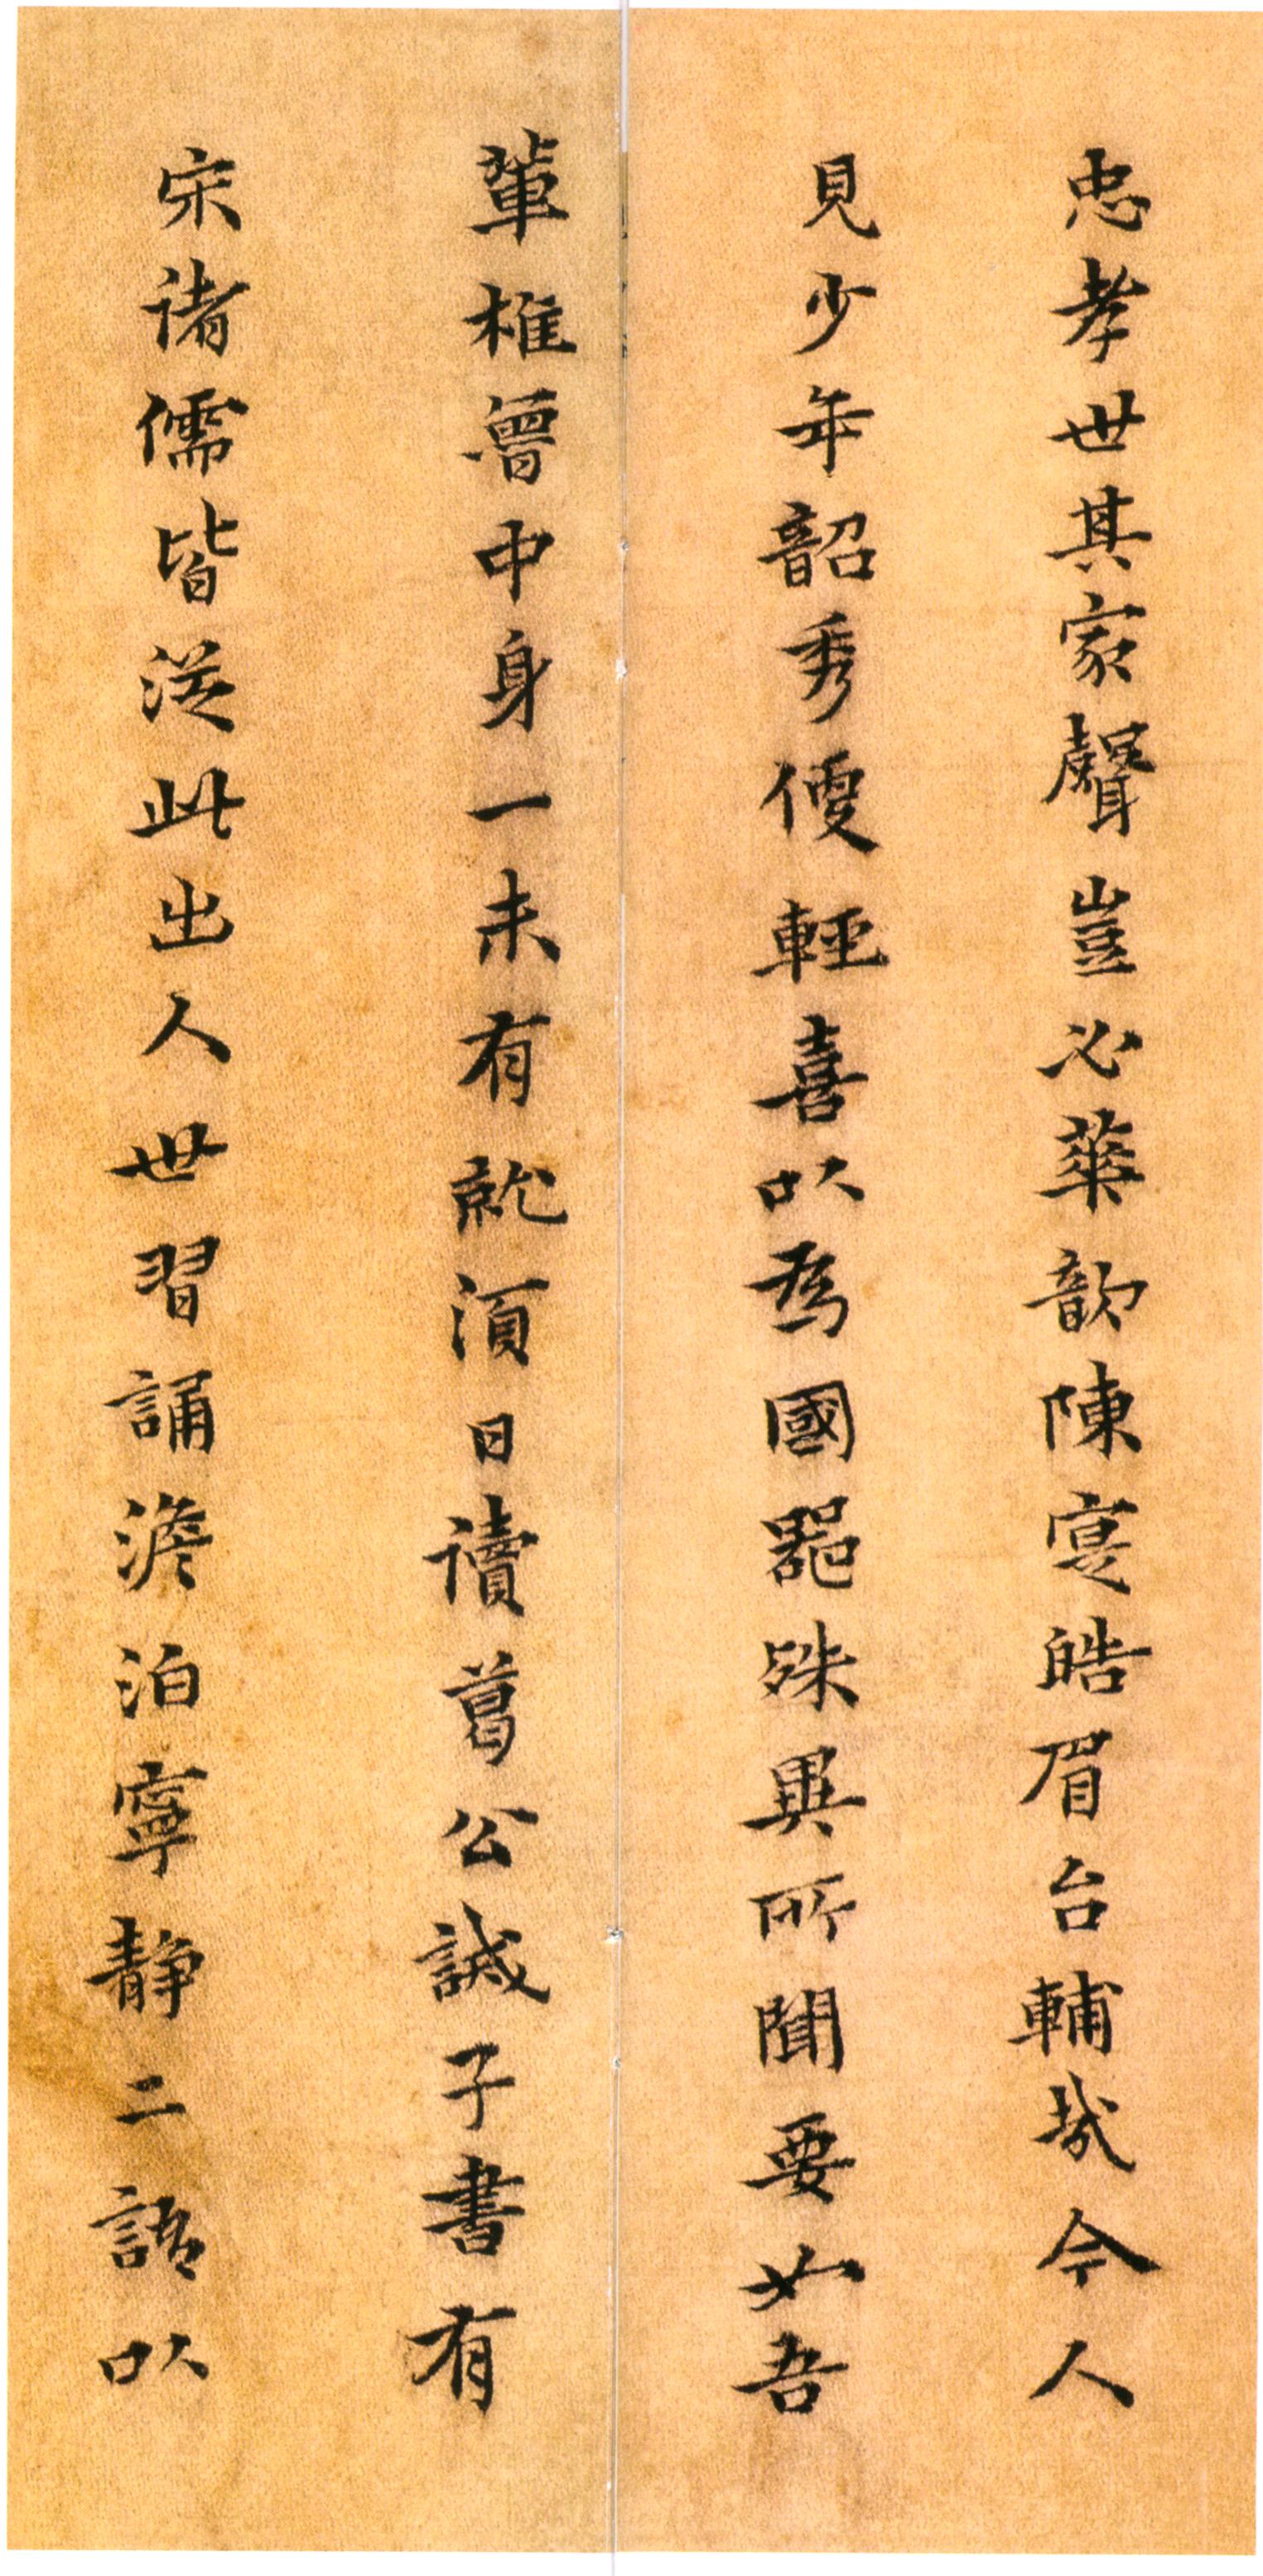 忠孝世其家聲豈必華歆陳寔皓眉台輔哉今人
見少年韶秀便輕喜以為國器殊異所聞要如吾
輩椎魯中身一未有就須日讀葛公誡子書有
宋諸儒皆從此出人世習誦澹泊寧靜二語以